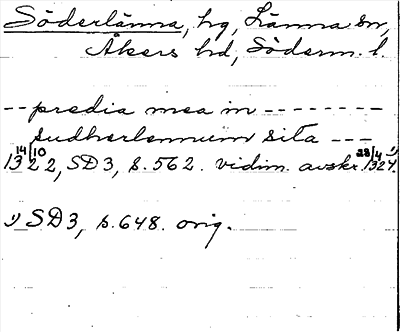 Söderlänna, hg, Länna sn,
Åkers hd, Söderm. l.
-- predia mea in --------
sudherlennum sita ---
13 14/10 22, SD 3, s. 562. vidim. avskr. 28/4 1324. 1)
1) SD 3, s. 648. orig.